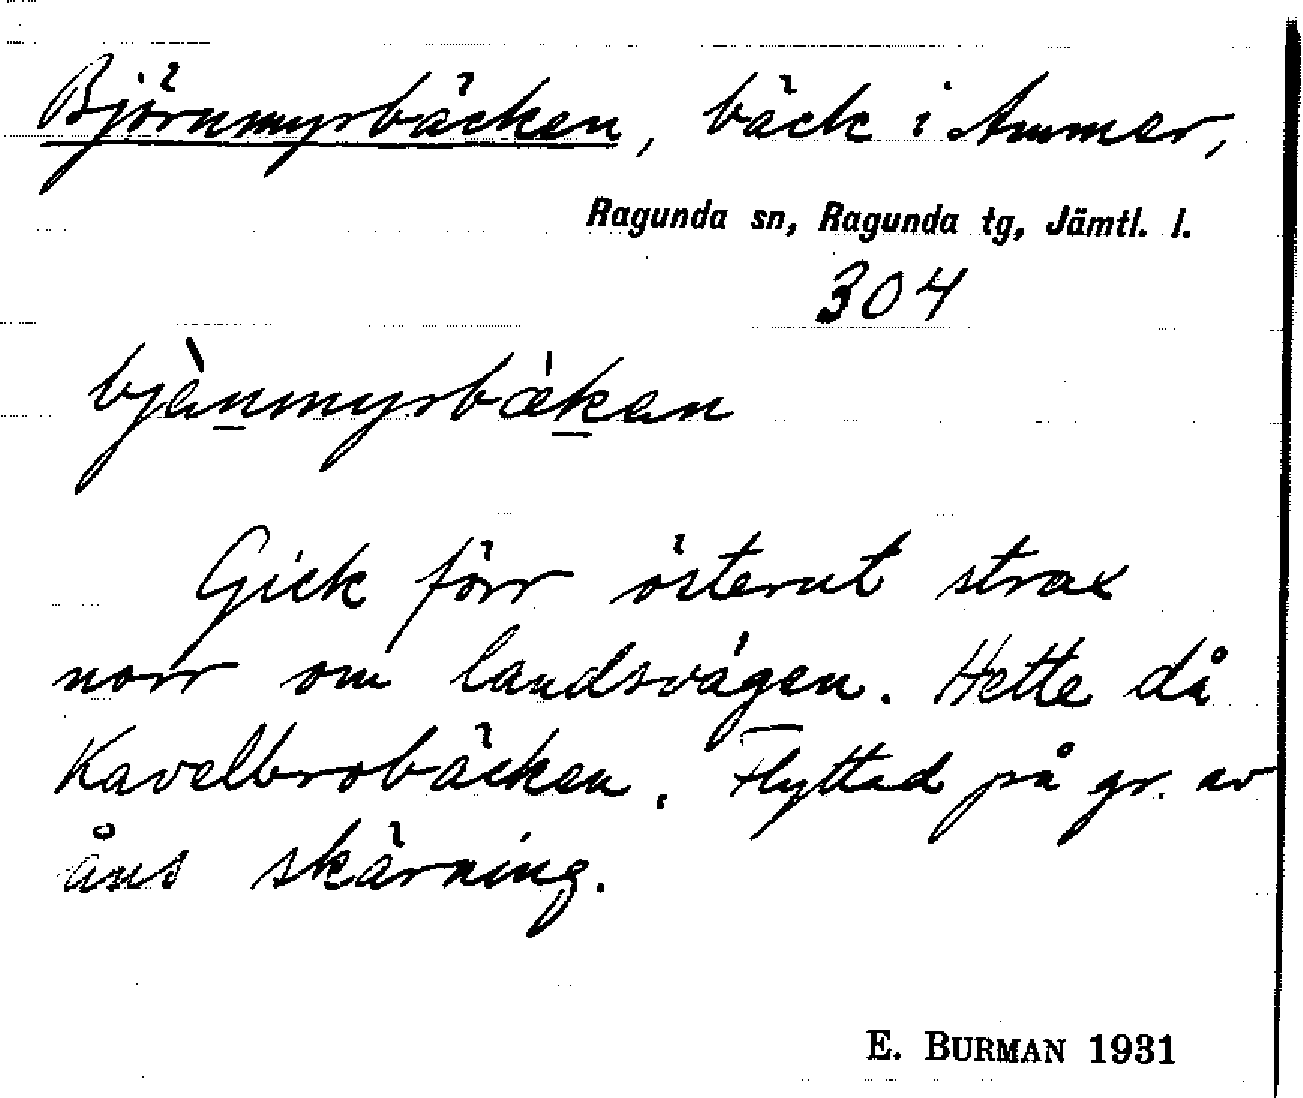 Björnmyrbäcken, bäck i Ammer,
Ragunda sn, Ragunda tg, Jämtl. l.
304
bjènmyrbæken
Gick förr österut strax
norr om landsvägen. Hette då
Kavelbrobäcken. Flyttad på gr. av
åns skärning.
E. BURMAN 1931